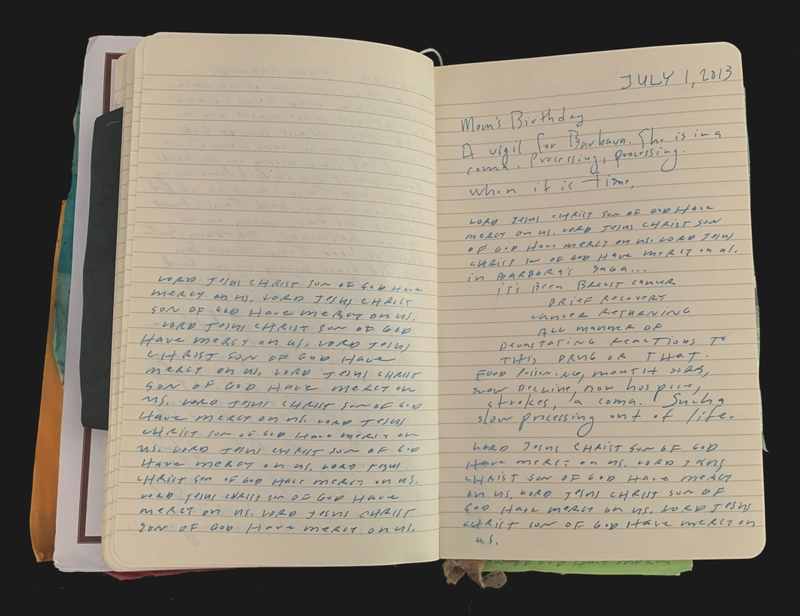 LORD JESUS CHRIST SON OF GOD HAVE
MERCY ON US. LORD JESUS CHRIST
SON OF GOD HAVE MERCY ON US.
LORD JESUS CHRIST SON OF GOD
HAVE MERCY ON US. LORD JESUS
CHRIST SON OF GOD HAVE
MERCY ON US. LORD JESUS CHRIST
SON OF GOD HAVE MERCY ON
US. LORD JESUS CHRIST SON OF GOD
HAVE MERCY ON US. LORD JESUS
CHRIST SON OF GOD HAVE MERCY ON
US. LORD JESUS CHRIST SON OF GOD
HAVE MERCY ON US. LORD JESUS
CHRIST SON OF GOD HAVE MERCY ON US.
LORD JESUS CHRIST SON OF GOD HAVE
MERCY ON US. LORD JESUS CHRIST
SON OF GOD HAVE MERCY ON US.
JULY 1, 2013
Mom's Birthday
A vigil for Barbara. She is in a
coma. Processing, processing.
When it is time.
LORD JESUS CHRIST SON OF GOD HAVE
MERCY ON US. LORD JESUS CHRIST SON
OF GOD HAVE MERCY ON US. LORD JESUS
CHRIST SON OF GOD HAVE MERCY ON US.
IN BARBARA'S SAGA...
IT'S BEEN BREAST CANCER
BRIEF RECOVERY
CANCER RETURNING
ALL MANNER OF
DEVASTATING REACTIONS TO
THIS DRUG OR THAT.
FOOD POISONING, MOUTH SORES,
SLOW DECLINE, NOW HOSPICE,
STROKES, A COMA. Such a
slow processing out of life.
LORD JESUS CHRIST SON OF GOD
HAVE MERCY ON US. LORD JESUS
CHRIST SON OF GOD HAVE MERCY
ON US. LORD JESUS CHRIST SON OF
GOD HAVE MERCY ON US. LORD JESUS
CHRIST SON OF GOD HAVE MERCY ON
US.